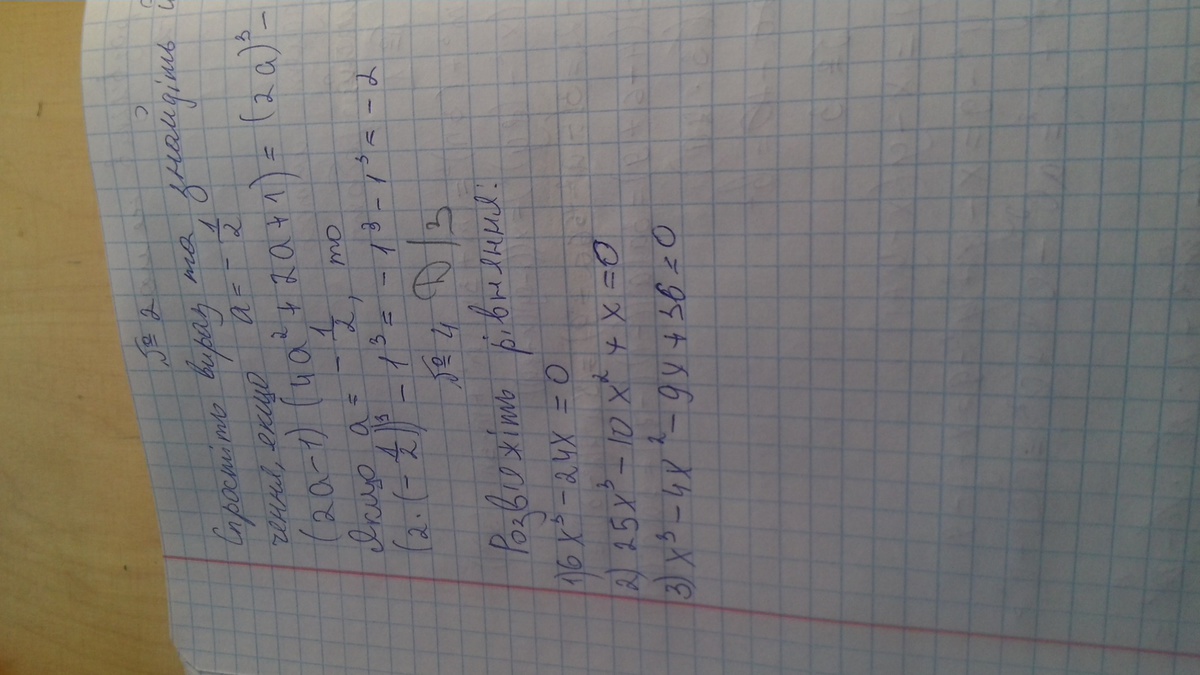 № 2
Спростіть вираз та знайдіть
чення, якщо a = - 1/2
(2a-1)(4a² + 2a + 1) = (2a)³ -
Якщо a = - 1/2, то
(2·(-1/2))³ - 1³ = - 1³ - 1³ = - 2
№ 4 Д/З
Розв'яжіть рівняння:
1) 6x³ - 24x = 0
2) 25x³ - 10x² + x = 0
3) x³ - 4x² - 9x + 36 = 0